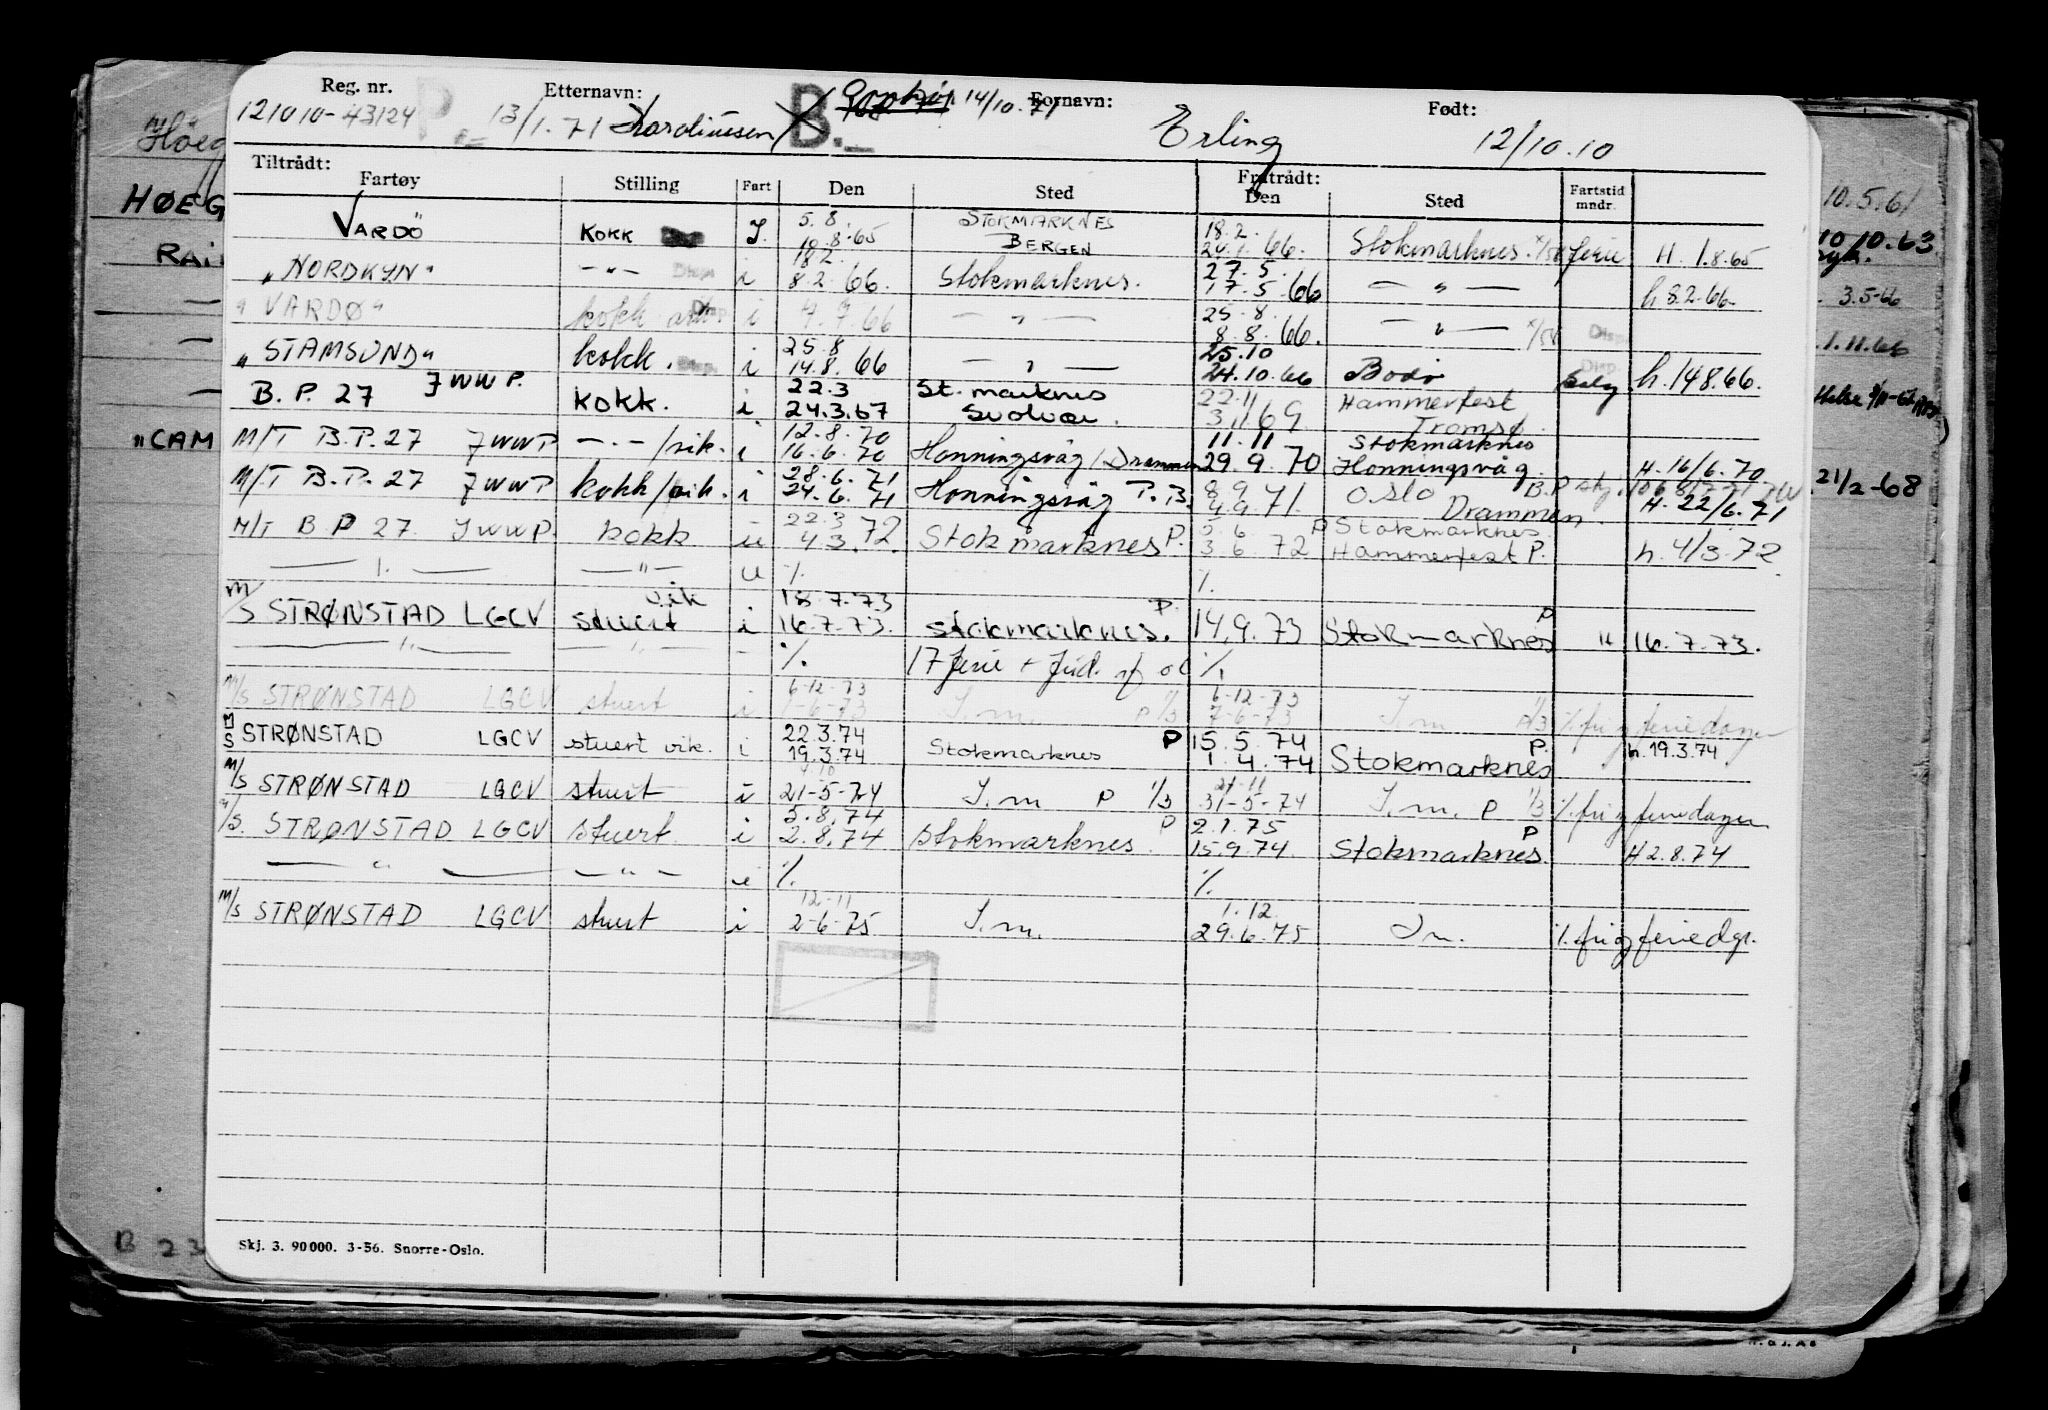 Reg. nr. Etternavn: Fornavn: Født:
121010-43124 P 13/1.71 B. 14/10.71 Erling 12/10.10
Tiltrådt: Fratrådt:
Fartøy Stilling Fart Den Sted Den Sted Fartstid mndr.
5.8. STOKMARKNES 18.2.
VARDÖ KOKK I. 10.8.65 BERGEN 24.1.66. Stokmarknes. ferie H. 1.8.65
18.2. 27.5.
"NORDKYN" -"- Disp. i 8.2.66. Stokmarknes. 17.5.66 — " — h 8.2.66.
25.8.
"VARDØ" kokk Disp. i 7.7.66 — " — 8.8.66. — " — Disp.
25.8 25.10
"STAMSUND" kokk. Disp. i 14.8.66 — " — 24.10.66 Bodø Disp. h. 14.8.66.
22.3 St. marknes 22.11 Hammerfest
B.P. 27 JWWP. KOKK. i 24.3.67 Svolvær. 3.11.69 Tromsø.
12.8.70 11.11 Stokmarknes
M/T B.P. 27 JWWP -.-/vik. i 16.6.70 Honningsvåg/Drammen 29.9.70 Honningsvåg. H. 16/6.70
28.6.71 8.9 Oslo
M/T B.P. 27 JWWP kokk/vik. i 24.6.71 Honningsvåg P.B. 4.9.71. Drammen. H. 22/6.71
22.3 5.6. P Stokmarknes.
M/T B P 27. JWWP. kokk u 4.3.72. Stokmarknes P. 3.6.72 Hammerfest P. h. 4/3.72
— " — — " — u % %
vik 18.7.73 P. P
M/S STRØNSTAD LGCV stuert i 16.7.73. stokmarknes. 14.9.73 Stokmarknes H 16.7.73.
— " — — " — - %. 17 ferie + %
6-12-73 6-12-73
M/S STRØNSTAD LGCV stuert i 1-6-73 I.m. P 1/3 7-6-73 I.m P 1/3 % fri og feriedager
22.3.74 P 15.5.74 P.
M/S STRØNSTAD LGCV stuert vik. i 19.3.74 Stokmarknes 1.4.74 Stokmarknes h. 19.3.74
4.10 21-11
M/S STRØNSTAD LGCV stuert i 21-5-74 I.m P 1/3 31-5-74 I.m. P 1/3 % fri og feriedager
5.8.74 P 2.1.75 P
M/S. STRØNSTAD LGCV stuert. i 2.8.74 stokmarknes. 15.9.74. Stokmarknes. H 2.8.74
— " — — " — i % %
12-11 1.12.
M/S STRØNSTAD LGCV stuert i 2-6-75 I.m. 29.6.75 I m. % fri og feriedgr.
Skj. 3. 90000. 3-56. Snorre-Oslo.
HØEG
RAI
"CAM
B 23
10.5.61
10/10.63
3.5-66
1.11.66
21/2-68